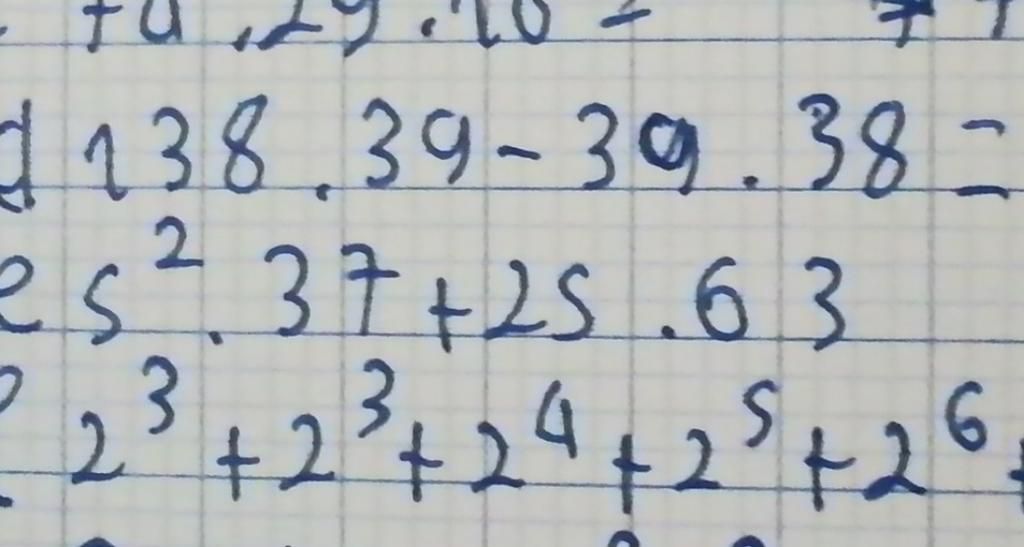 .29.10 =
d 138.39-39.38=
e 5².37+25.63
2³+2³+2⁴+2⁵+2⁶+